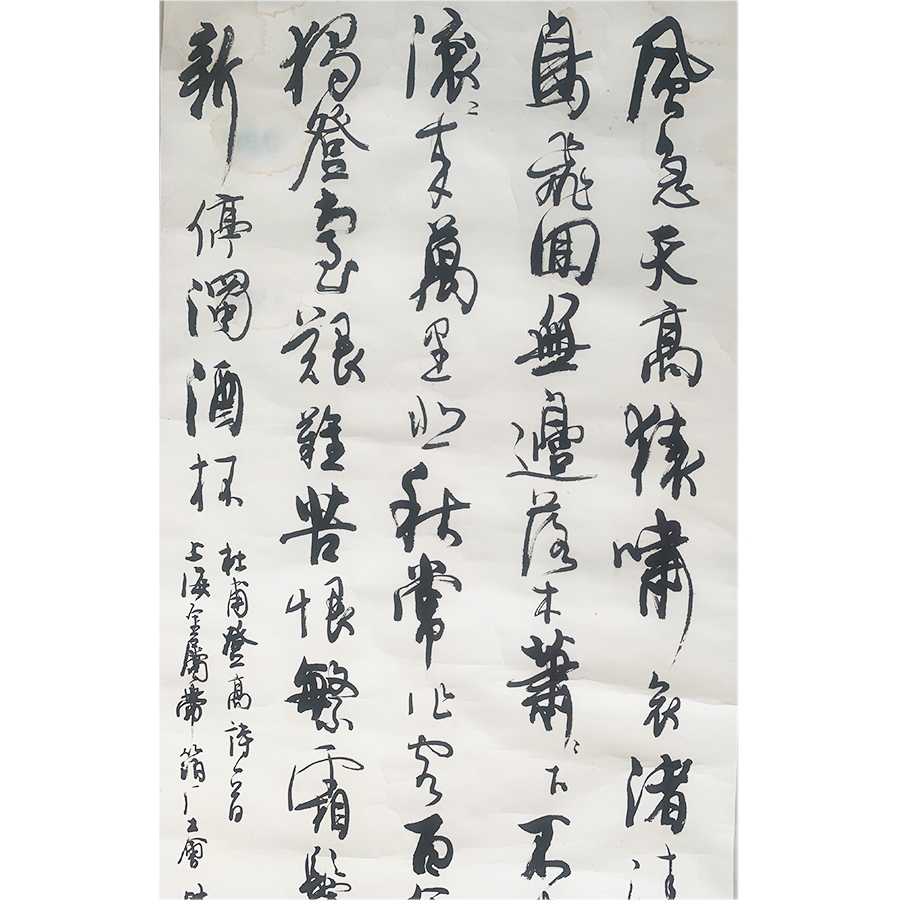 風急天高猿嘯哀渚清
鳥飛囬無邊落木蕭〻下不
滾〻來萬里悲秋常作客百年
獨登臺艱難苦恨繁霜鬢
新停濁酒杯
杜甫登高詩一首
上海金屬帶箔厂工會